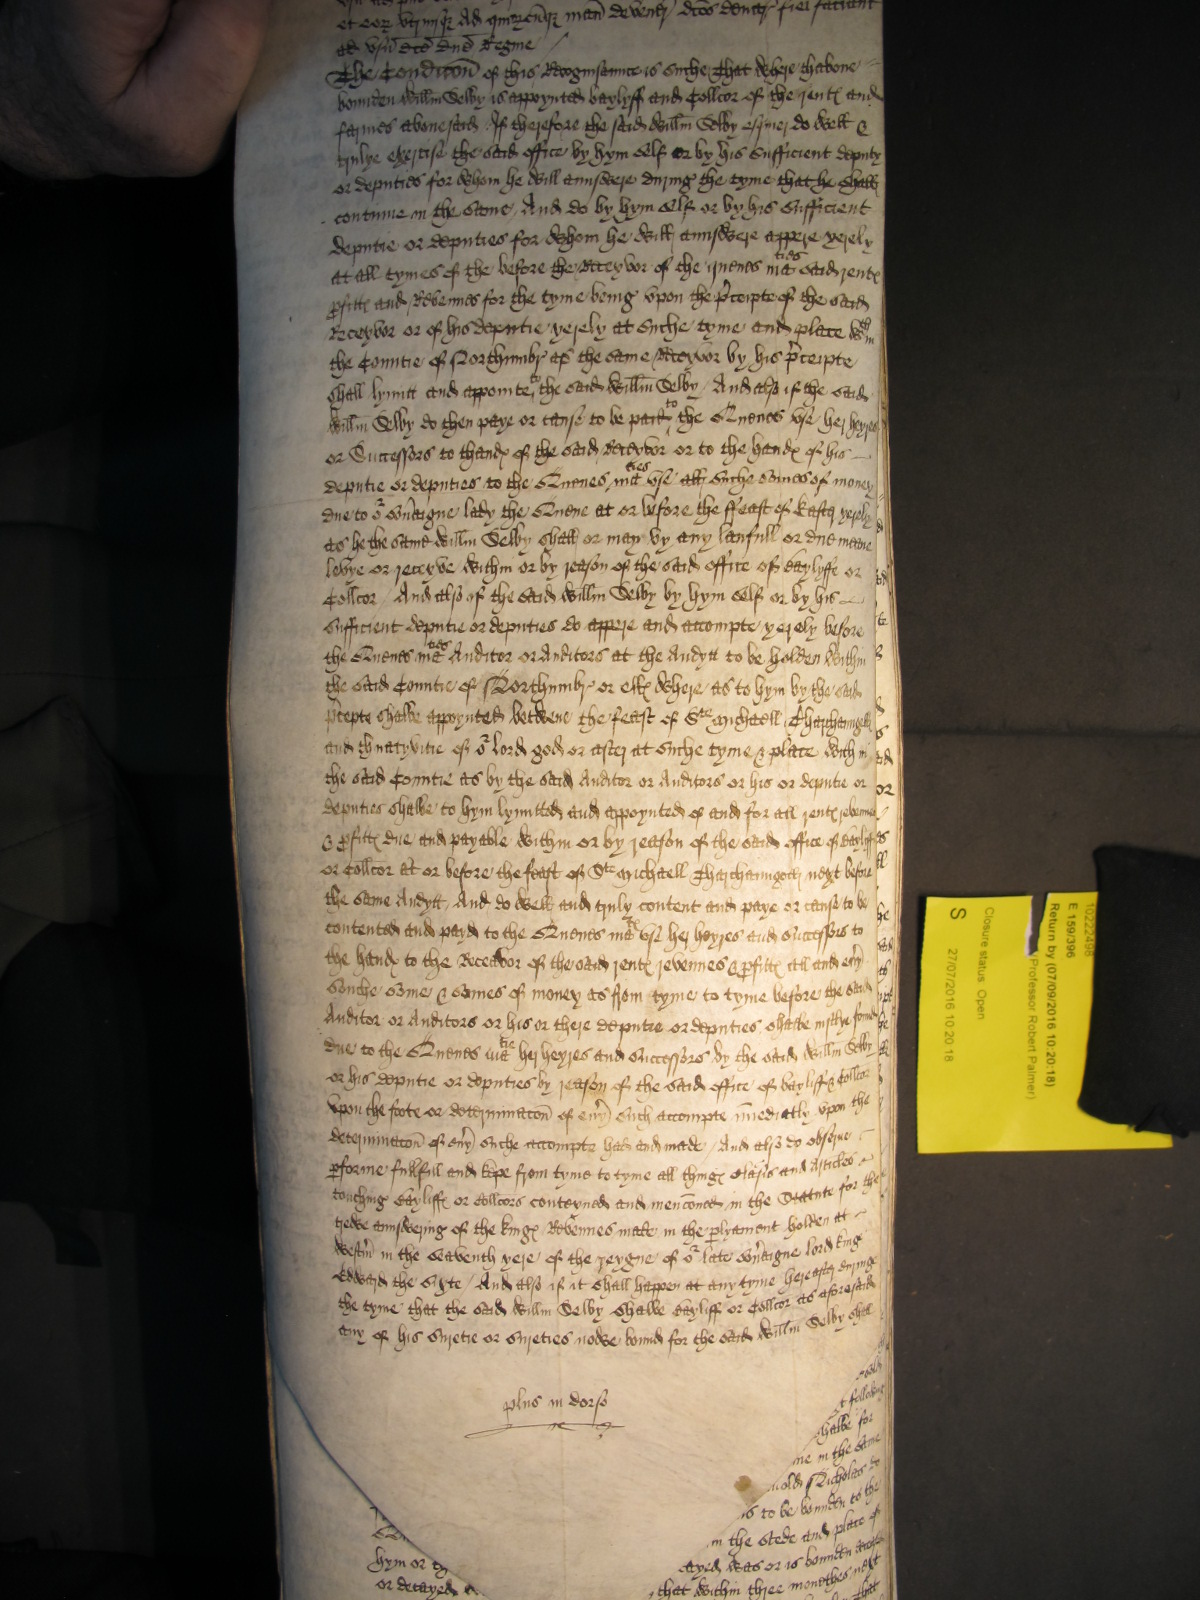 et eor vtriusq Ad quorumcuq man devener dcos denar fieri faciant
ad vsu dcte dne Regine
The Condicon of this Recognisaunce is suche That where thabove
bounden Willm Selby is appoynted baylyff and Collcor of the rent and
farmes abovesaid If therefore the said Willm Selby do well &
trulye exercise the said office by hym self or by his sufficient deputy
or deputies for whom he will aunswere during the tyme that he shall
contynue in the same / And do by hym self or by his sufficient
deputie or deputies for whom he will aunswere appere yerely
at all tymes before the Receyvor of the quenes maties said rent
pfitt and Revenues for the tyme being vpon the precepte of the said
Receyvor or of his deputie yerely at suche tyme and place wthin
the Countie of Northumbr as the same Receyvor by his precepte
shall lymitt and appointe to the said Willm Selby / And also if the said
Willm Selby do then paye or cause to be paid to the Quenes vse her heyres
or Successors to thand of the said Receyvor or to the hand of his
deputie or deputies to the Quenes maties vse all suche somes of money
due to or soveraigne lady the Quene at or before the ffeast of Easter yerely
as he the same Willm Selby shall or may by any laufull or due meane
levye or receyve within or by reason of the said office of Baylyffe or
Collcor / And also if the said Willm Selby by hym self or by his
sufficient deputie or deputies do appere and accompte yerely before
the Quenes maties Auditor or Auditors at the Audytt to be holden within
the said Countie of Northumbr or ells where as to hym by the said
precepte shalbe appoynted betwene the feast of Ste Michaell Tharchaungell
and thnatyvitie of or lord god or after at suche tyme & place with in
the said Countie as by the said Auditor or Auditors or his or deputie or
deputies shalbe to hym lymitted and appoynted of and for all rent revenues
& pfitt due and payable within or by reason of the said office of Bayliff
or Collcor at or before the feast of Ste Michaell Tharchaungell next before
the same Audytt And do well and truly content and paye or cause to be
contented and payd to the Quenes maties vse her heyres and successors to
the hand to the Receavor of the said rent revennes & pfitt all and every
suche some & somes of money as from tyme to tyme before the said
Auditor or Auditors or his or there deputie or deputies shalbe iustlye founde
due to the Quenes matie her heyres and successors by the said Willm Selby
or his deputie or deputies by reason of the said office of bayliff & Collcor
vpon the foote or determinacon of every such accompte imediatly vpon the
determinacon of every suche accompte had and made / And also do observe
pforme fulfill and kepe from tyme to tyme all thing clauses and Articles
touching Bayliff or Collcors conteyned and menconed in the Statute for the
trewe aunswering of the king Revennes made in the plyament holden at
Westm in the Seaventh yere of the reygne of or late soveraigne lord king
Edward the Sixte / And also if it shall happen at any tyme hereafter during
the tyme that the said Willm Selby shalbe Bayliff or Collcor as aforesaid
any of his suretie or sureties nowe bound for the said Willm Selby shall
plus in dorso
t following
shalbe for
me in the same
Nicholas do
is to be bounden to the
in the stede and place of
hym or
ayed was or is bounden
or decayed
that within three monethes next
10222498
E 159/396
Return by (07/09/2016 10:20:18)
Professor Robert Palmer)
Closure status: Open
S
27/07/2016 10:20:18